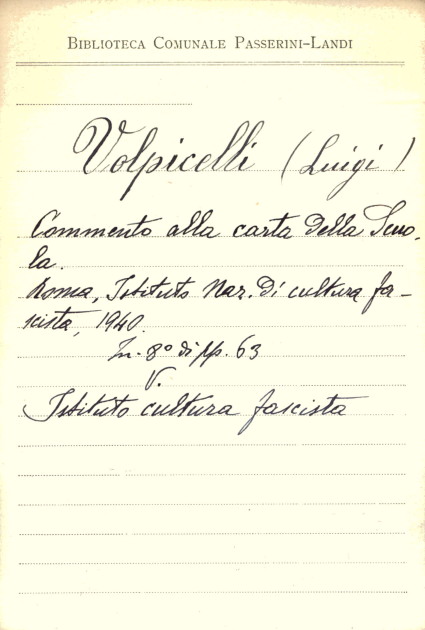 BIBLIOTECA COMUNALE PASSERINI-LANDI
Volpicelli (Luigi)
Commento alla carta della Scuo-
la.
Roma, Istituto Naz. di cultura fa-
scista, 1940.
In-8º di pp. 63
V.
Istituto cultura fascista